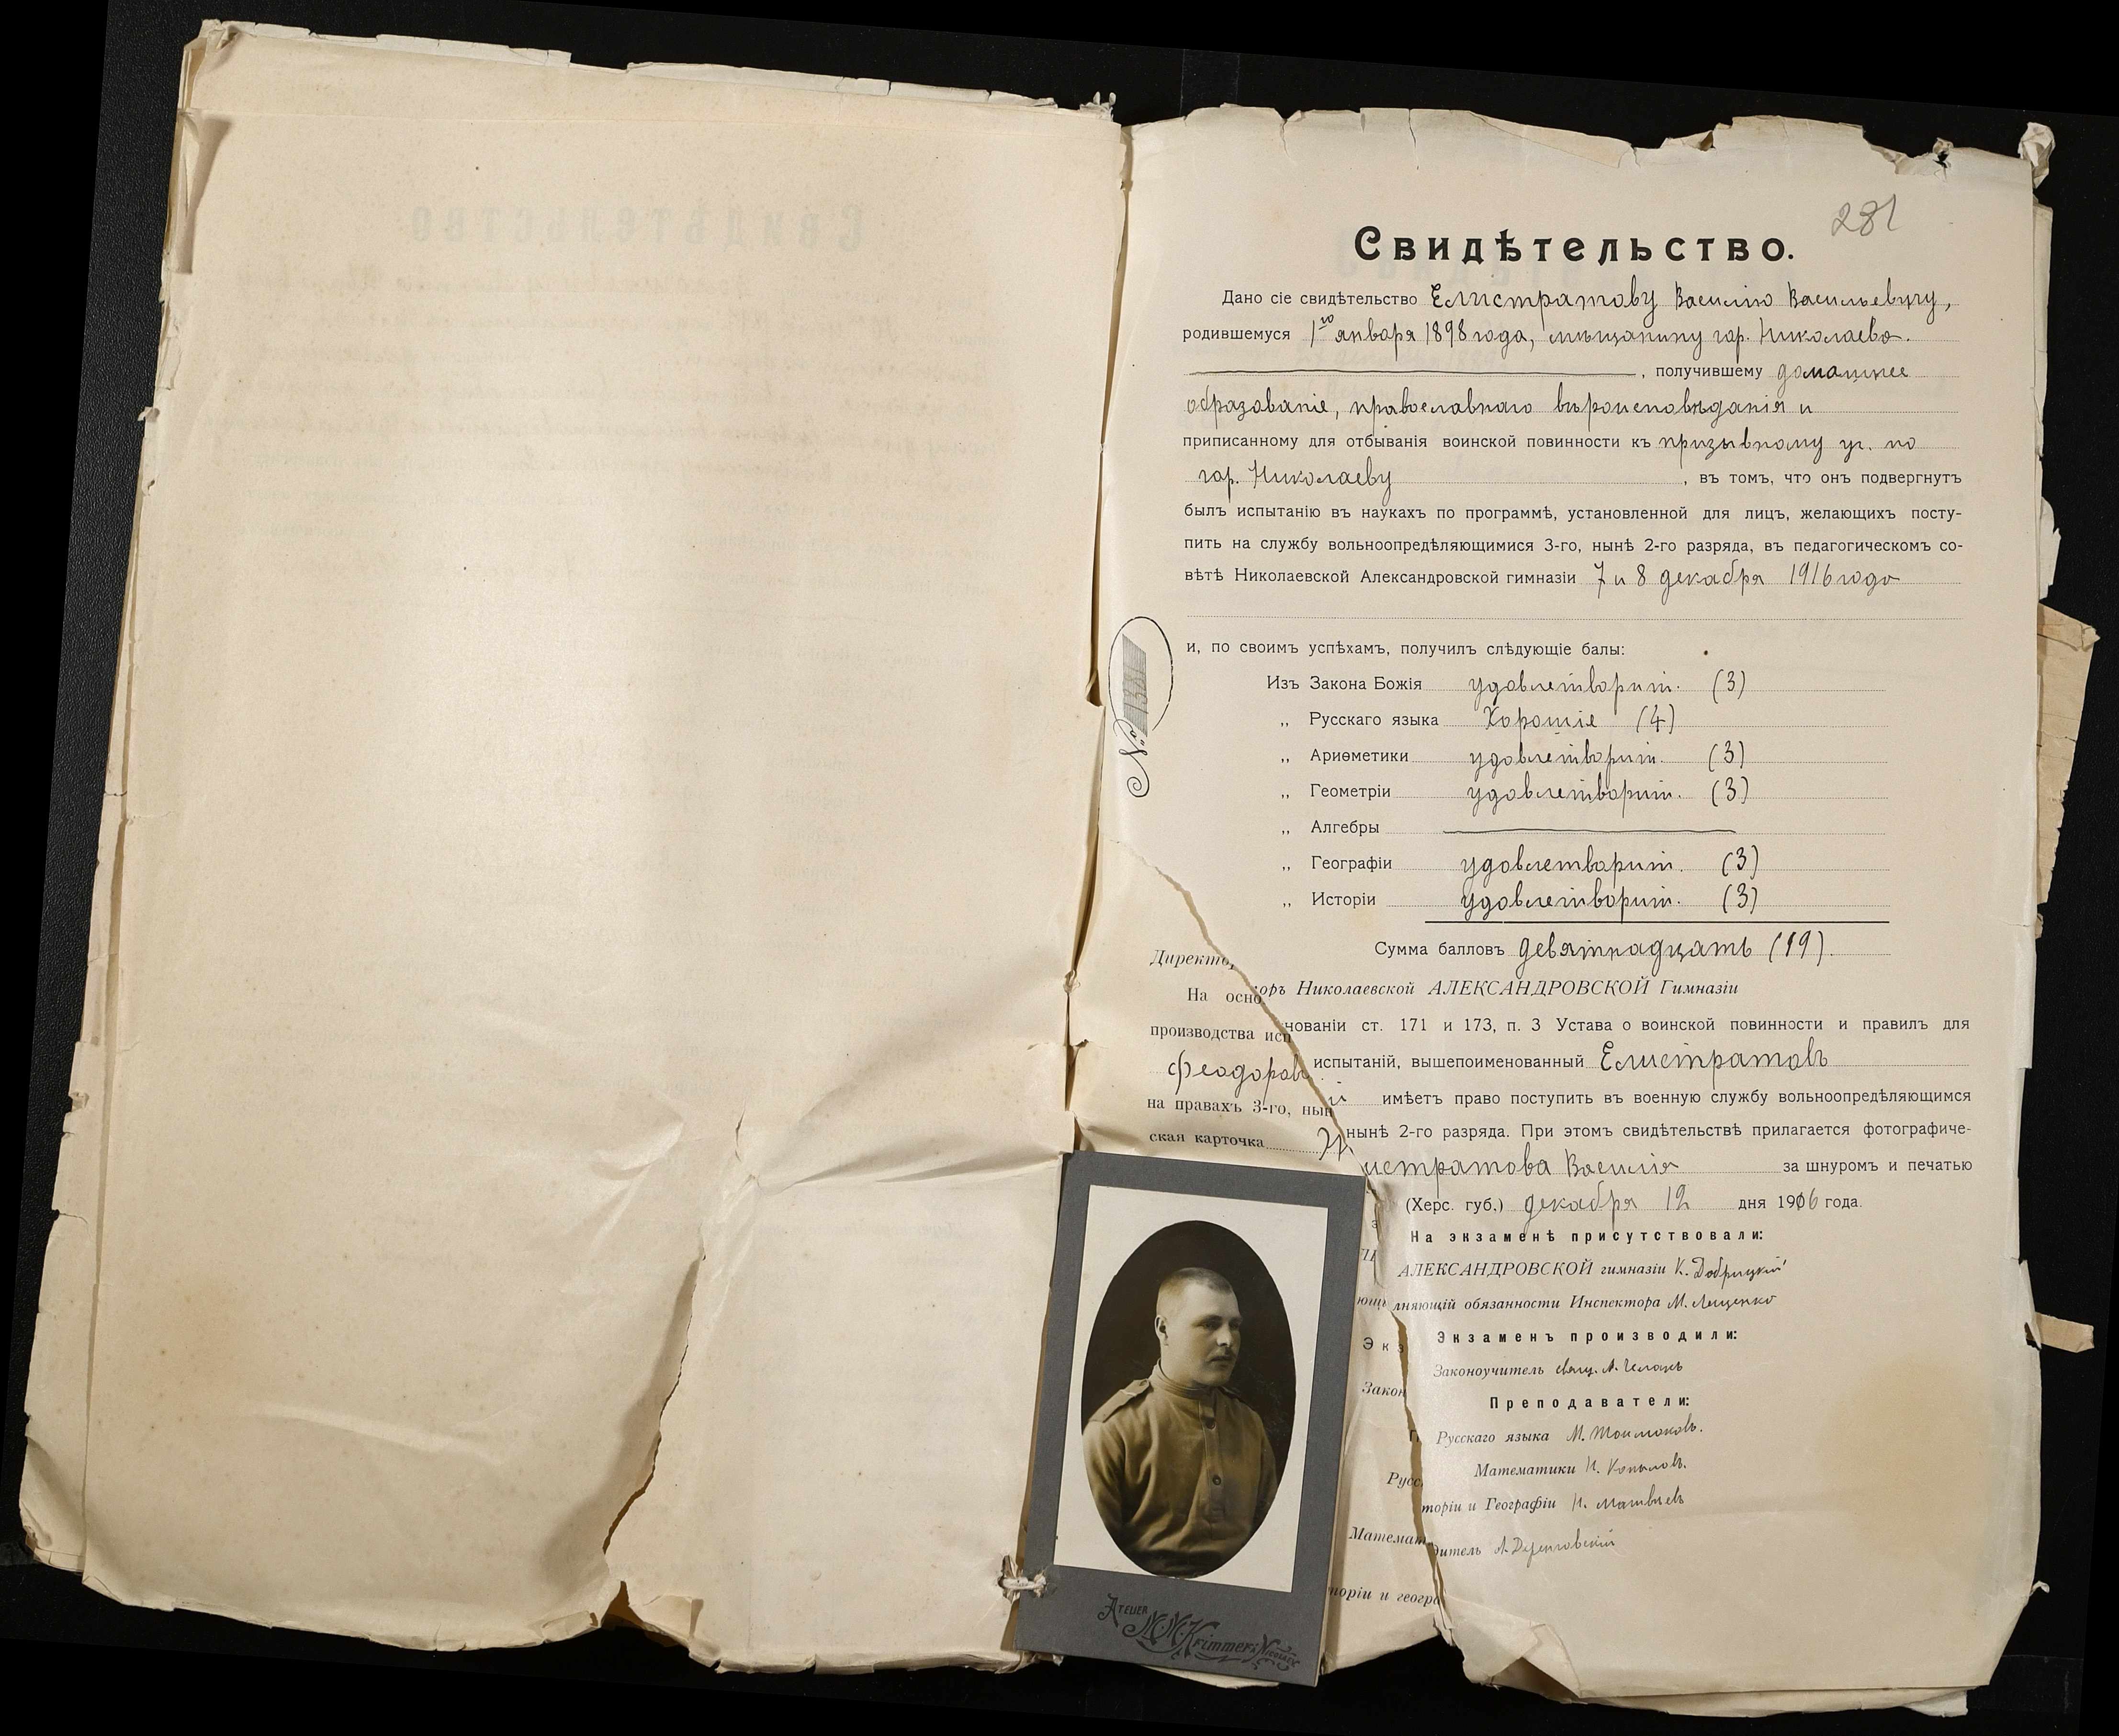 281
Свидѣтельство.
Дано сіе свидѣтельство Елистратову Василію Васильевичу,
родившемуся 1го января 1898 года, мѣщанину гор. Николаева.
, получившему домашнее
образованіе, православнаго вѣроисповѣданія и
приписанному для отбыванія воинской повинности къ призывному уч. по
гор. Николаеву , въ томъ, что онъ подвергнутъ
былъ испытанію въ наукахъ по программѣ, установленной для лицъ, желающихъ посту-
пить на службу вольноопредѣляющимися 3-го, нынѣ 2-го разряда, въ педагогическомъ со-
вѣтѣ Николаевской Александровской гимназіи 7 и 8 декабря 1916 года
и, по своимъ успѣхамъ, получилъ слѣдующіе балы:
Изъ Закона Божія удовлетворит. (3)
„ Русскаго языка Хорошіе (4)
„ Ариѳметики удовлетворит. (3)
„ Геометріи удовлетворит. (3)
„ Алгебры
„ Географіи удовлетворит. (3)
„ Исторіи удовлетворит. (3)
№
Сумма балловъ девятнадцать (19).
Директо
оръ Николаевской АЛЕКСАНДРОВСКОЙ Гимназіи
На осно
нованіи ст. 171 и 173, п. 3 Устава о воинской повинности и правилъ для
производства исп
испытаній, вышепоименованный Елистратовъ
Феодоров
имѣетъ право поступить въ военную службу вольноопредѣляющимся
на правахъ 3-го, нын
нынѣ 2-го разряда. При этомъ свидѣтельствѣ прилагается фотографиче-
ская карточка
истратова Василія за шнуромъ и печатью
(Херс. губ.) декабря 12 дня 1916 года.
На экзаменѣ присутствовали:
АЛЕКСАНДРОВСКОЙ гимназіи К. Добрицкій
лняющій обязанности Инспектора М. Лященко
Экз
Экзаменъ производили:
Закон
Законоучитель свящ. А.
Преподаватели:
Русскаго языка М.
Русс
Математики Н. Копыловъ.
торіи и Географіи Н. Матвѣевъ
Математ
дитель А.
торіи и геогра
ATELIER M.M. Krimmer NICOLAEV